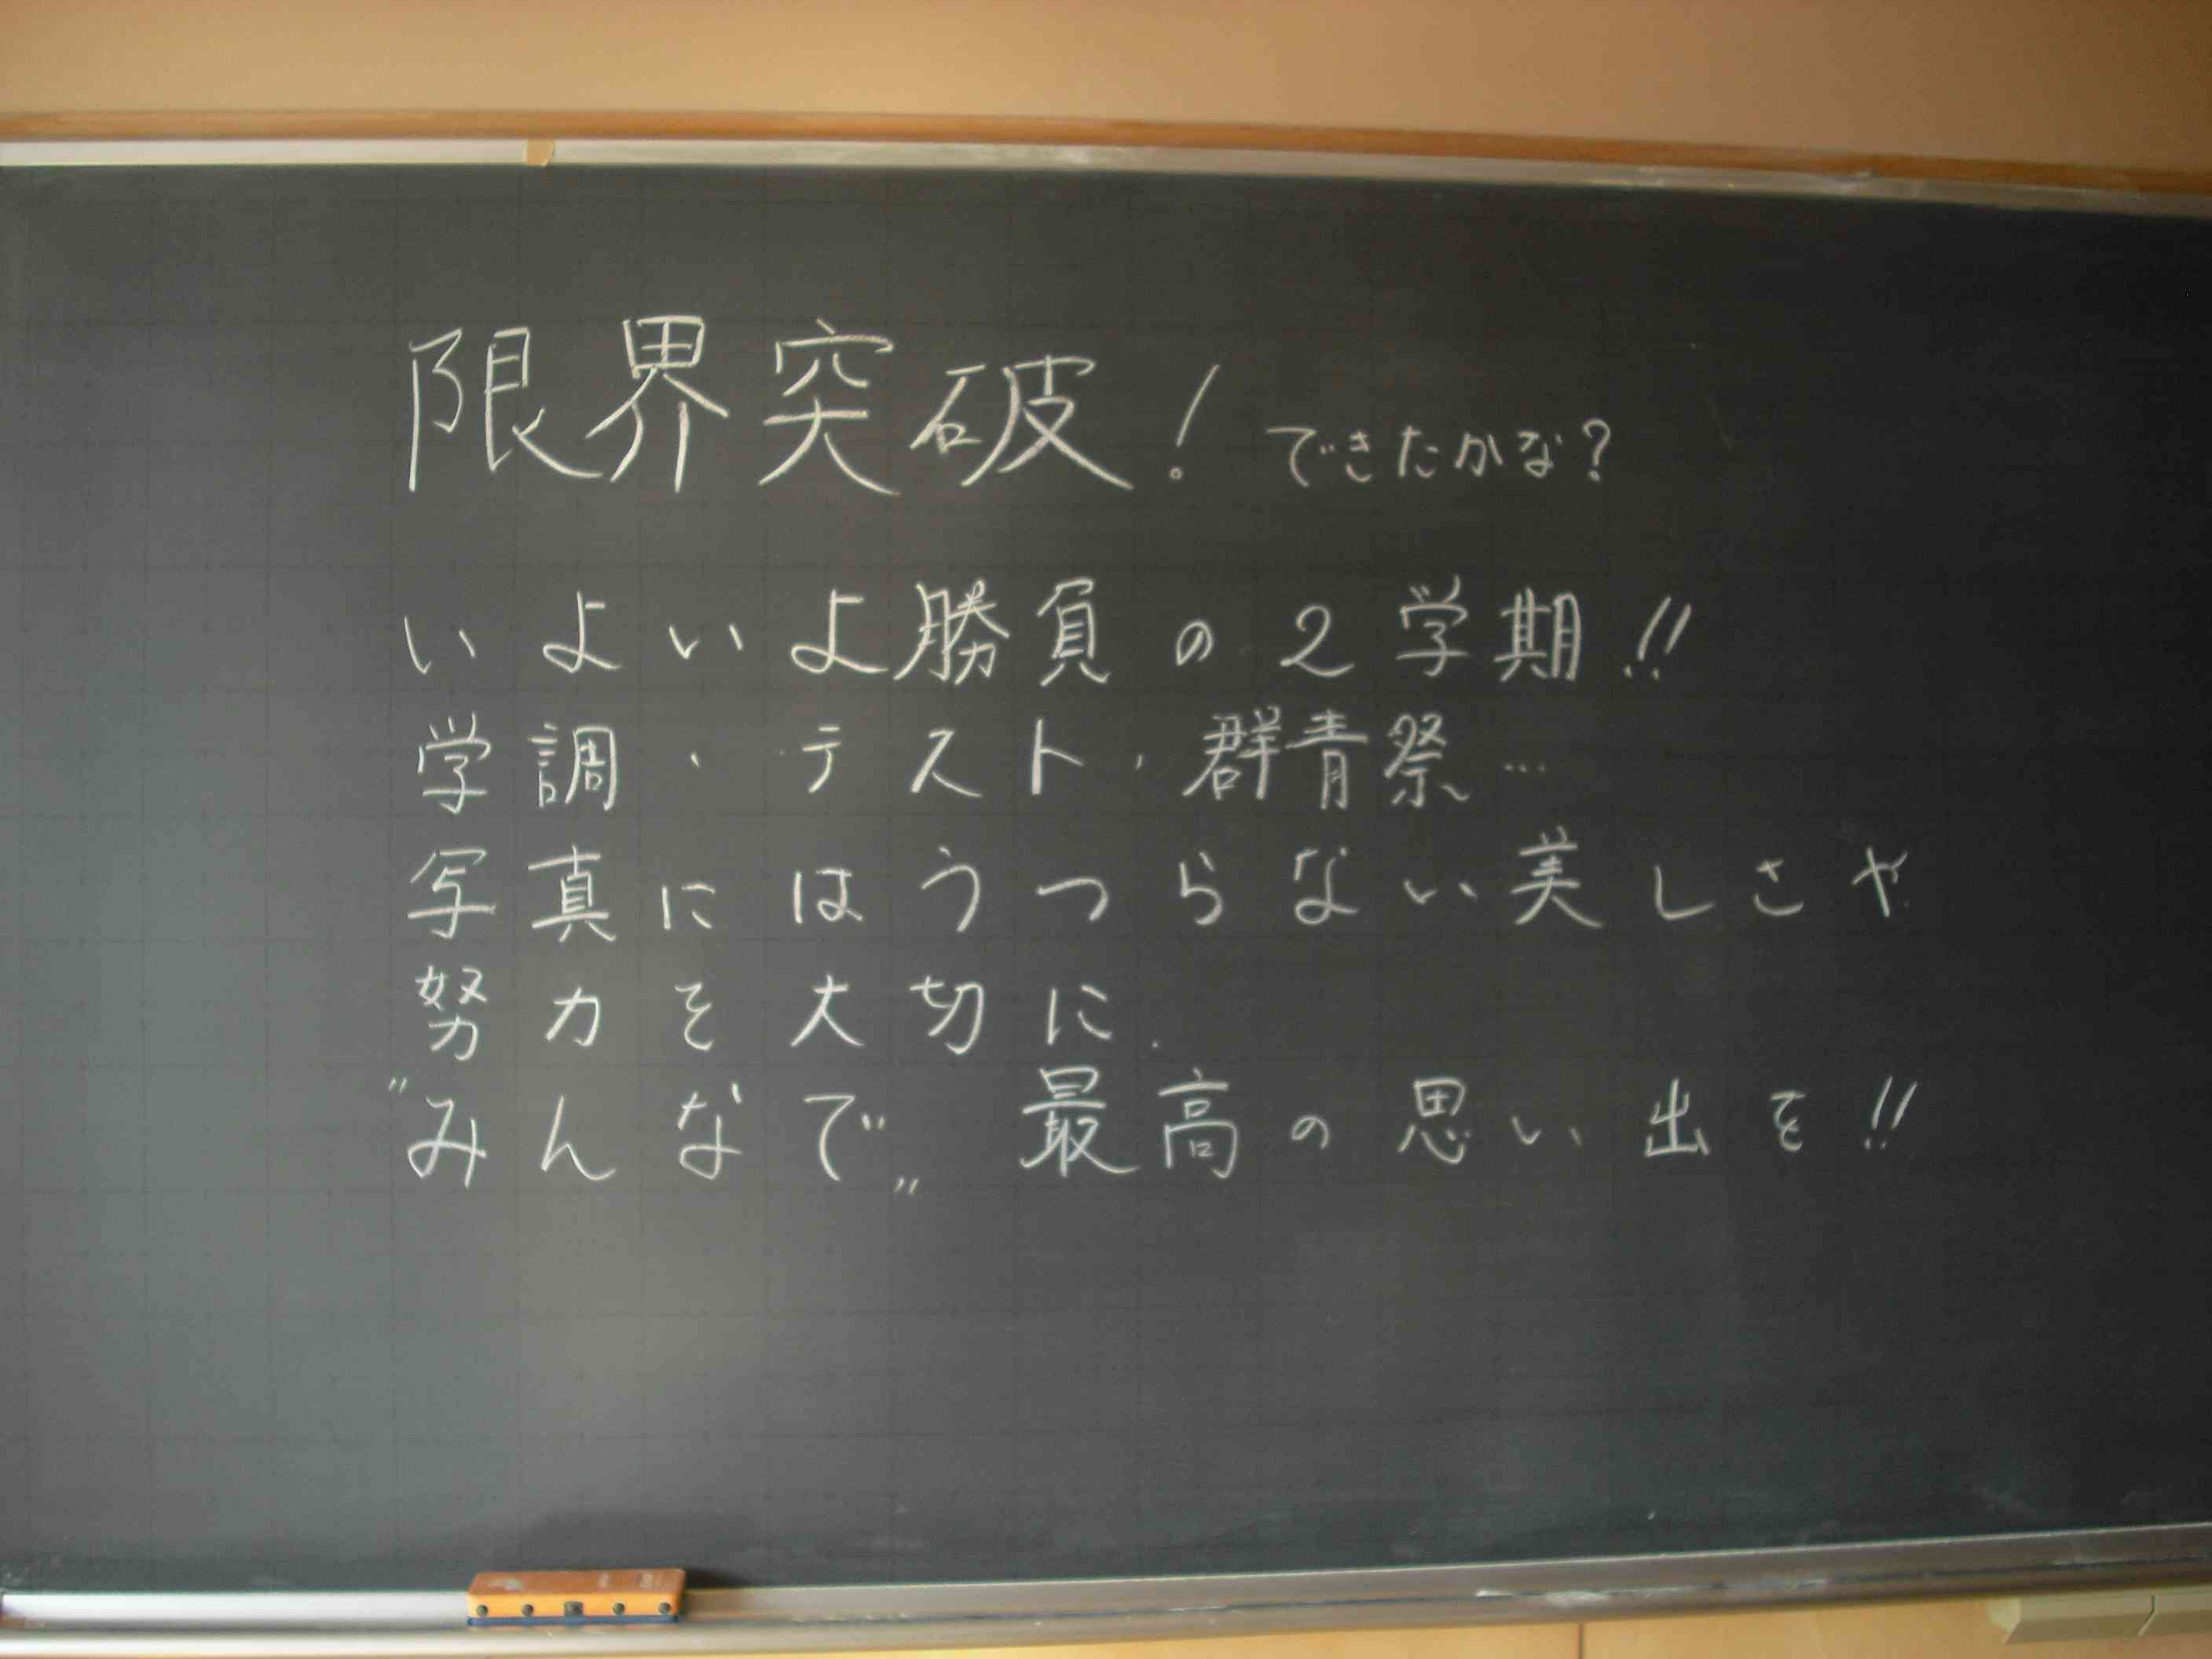 限界突破! できたかな?
いよいよ勝負の2学期!!
学調・テスト・群青祭…
写真にはうつらない美しさや
努力を大切に.
"みんなで„ 最高の思い出を!!